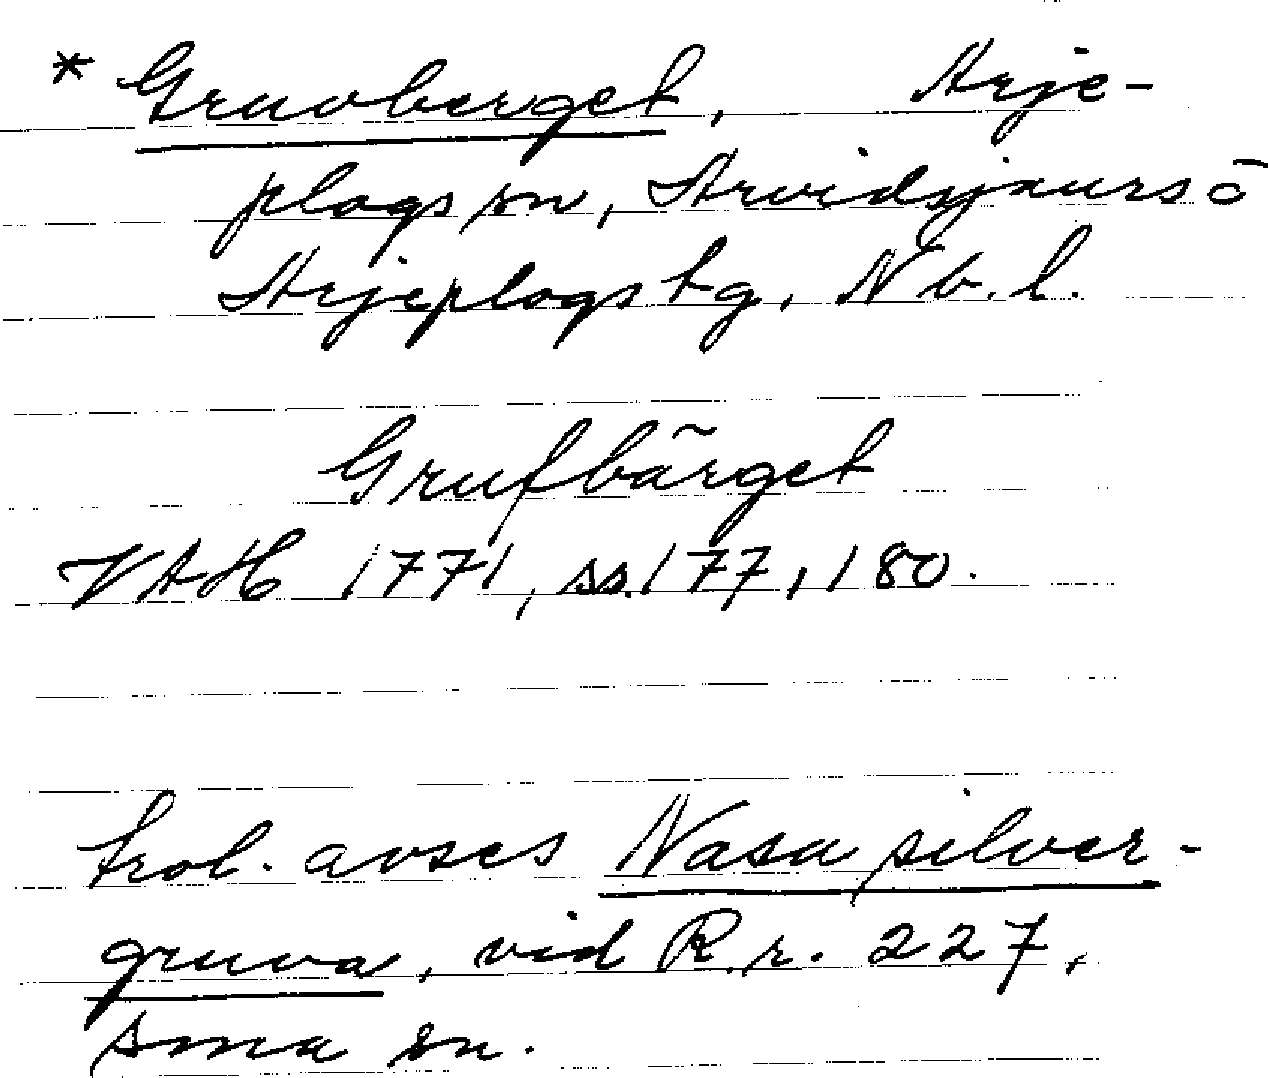 * Gruvberget, Arje-
plogs sn, Arvidsjaurs o
Arjeplogs tg, Nb. l.
Grufbärget
VAH 1771, ss. 177, 180.
trol. avses Nasa silver-
gruva, vid R.r. 227,
sma sn.